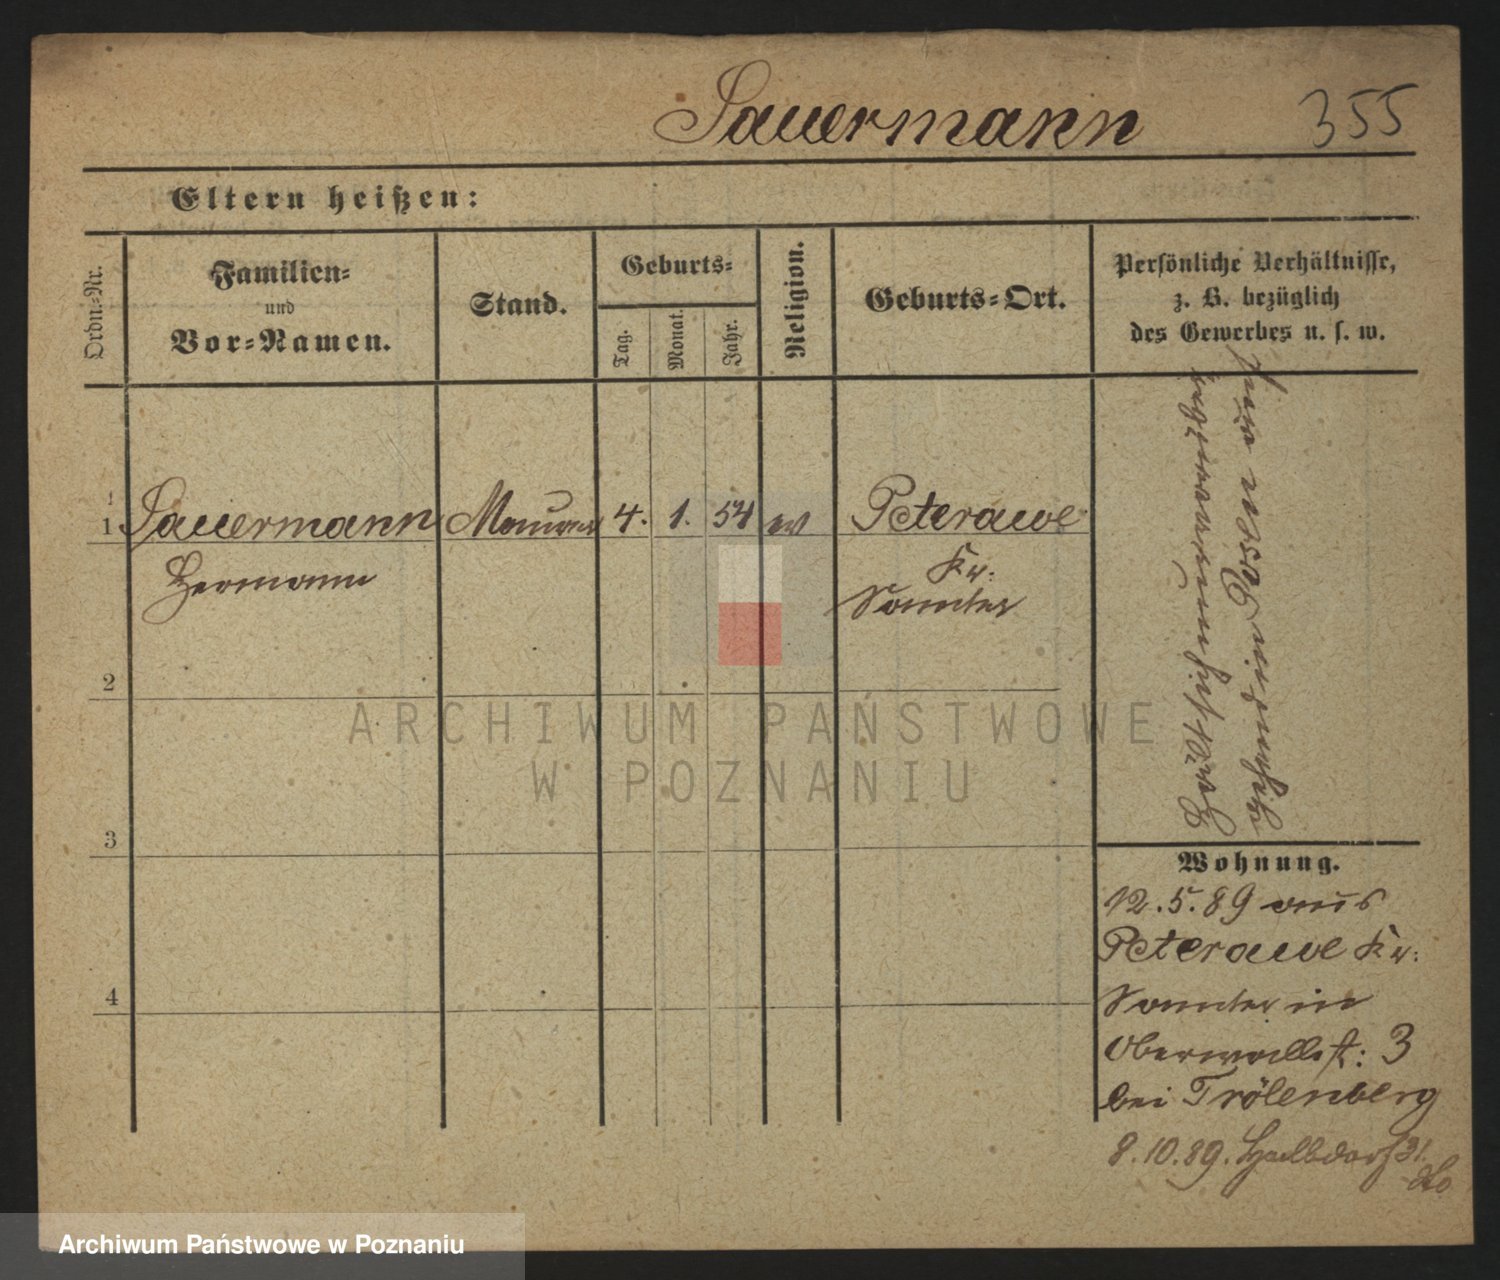 Sauermann 355
Eltern heißen:
Ordn.-Nr.
Familien-
und
Vor-Namen.
Stand.
Geburts-
Tag.
Monat.
Jahr.
Religion.
Geburts-Ort.
Persönliche Verhältnisse,
z. B. bezüglich
des Gewerbes u. s. w.
1 Sauermann Maurer 4. 1. 54 ev Peterawe
Hermann Kr:
Samter
2
3
4
Wohnung.
12.5.89 aus
Peterawe Kr:
Samter in
Oberwallst: 3
bei Trölenberg
8.10.89. Halbdorfst 31.
ARCHIWUM PAŃSTWOWE
W POZNANIU
Archiwum Państwowe w Poznaniu